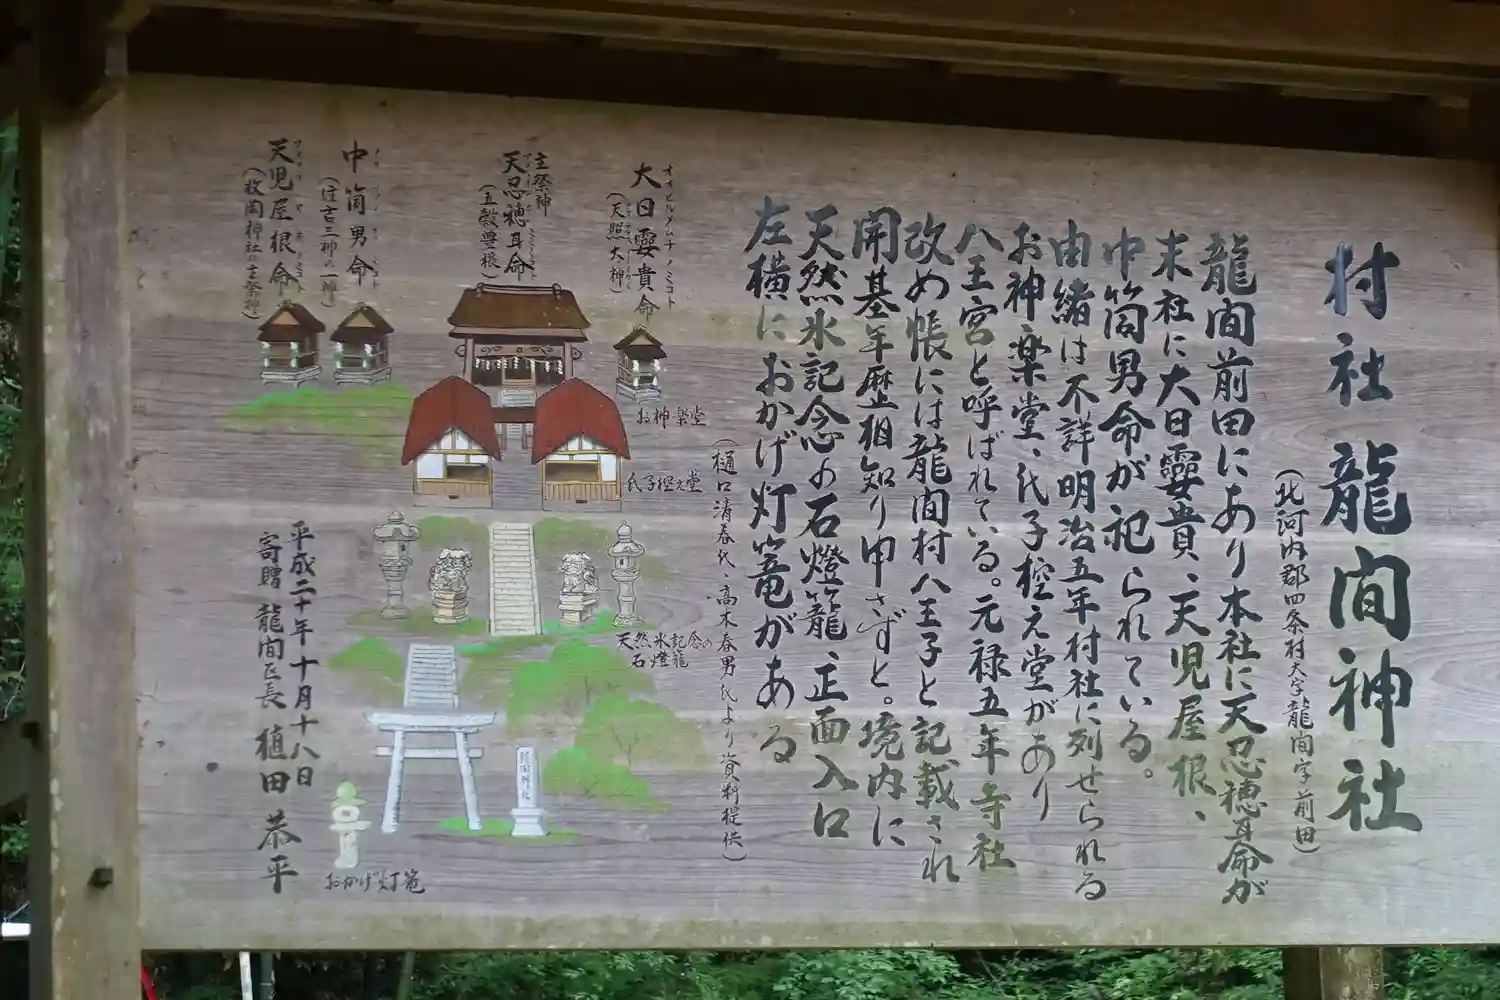 村社 龍間神社
(北河内郡四条村大字龍間字前田)
龍間前田にあり本社に天忍穂耳命が
末社に大日孁貴、天児屋根、
中筒男命が祀られている。
由緒は不詳明治五年村社に列せられる
お神楽堂、氏子控え堂があり
八王宮と呼ばれている。元禄五年寺社
改め帳には龍間村八王子と記載され
開基年歴相知り申さずと。境内に
天然氷記念の石燈籠、正面入口
左横におかげ灯篭がある
(樋口清春氏・高木春男氏より資料提供)
オオヒルメムチノミコト
大日孁貴命
(天照大神)
主祭神
天忍穂耳命
(五穀豊穣)
中筒男命
(住吉三神の一神)
天児屋根命
(枚岡神社の主祭神)
お神楽堂
氏子控え堂
天然氷記念の
石燈籠
龍間神社
おかげ灯篭
平成二十年十月十八日
寄贈 龍間区長 植田恭平